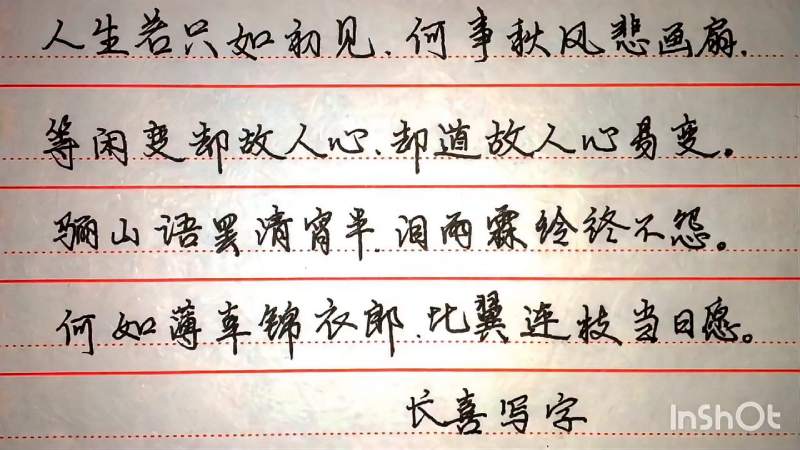 人生若只如初见,何事秋风悲画扇,
等闲变却故人心,却道故人心易变。
骊山语罢清宵半,泪雨霖铃终不怨。
何如薄幸锦衣郎,比翼连枝当日愿。
长喜写字
InShOt